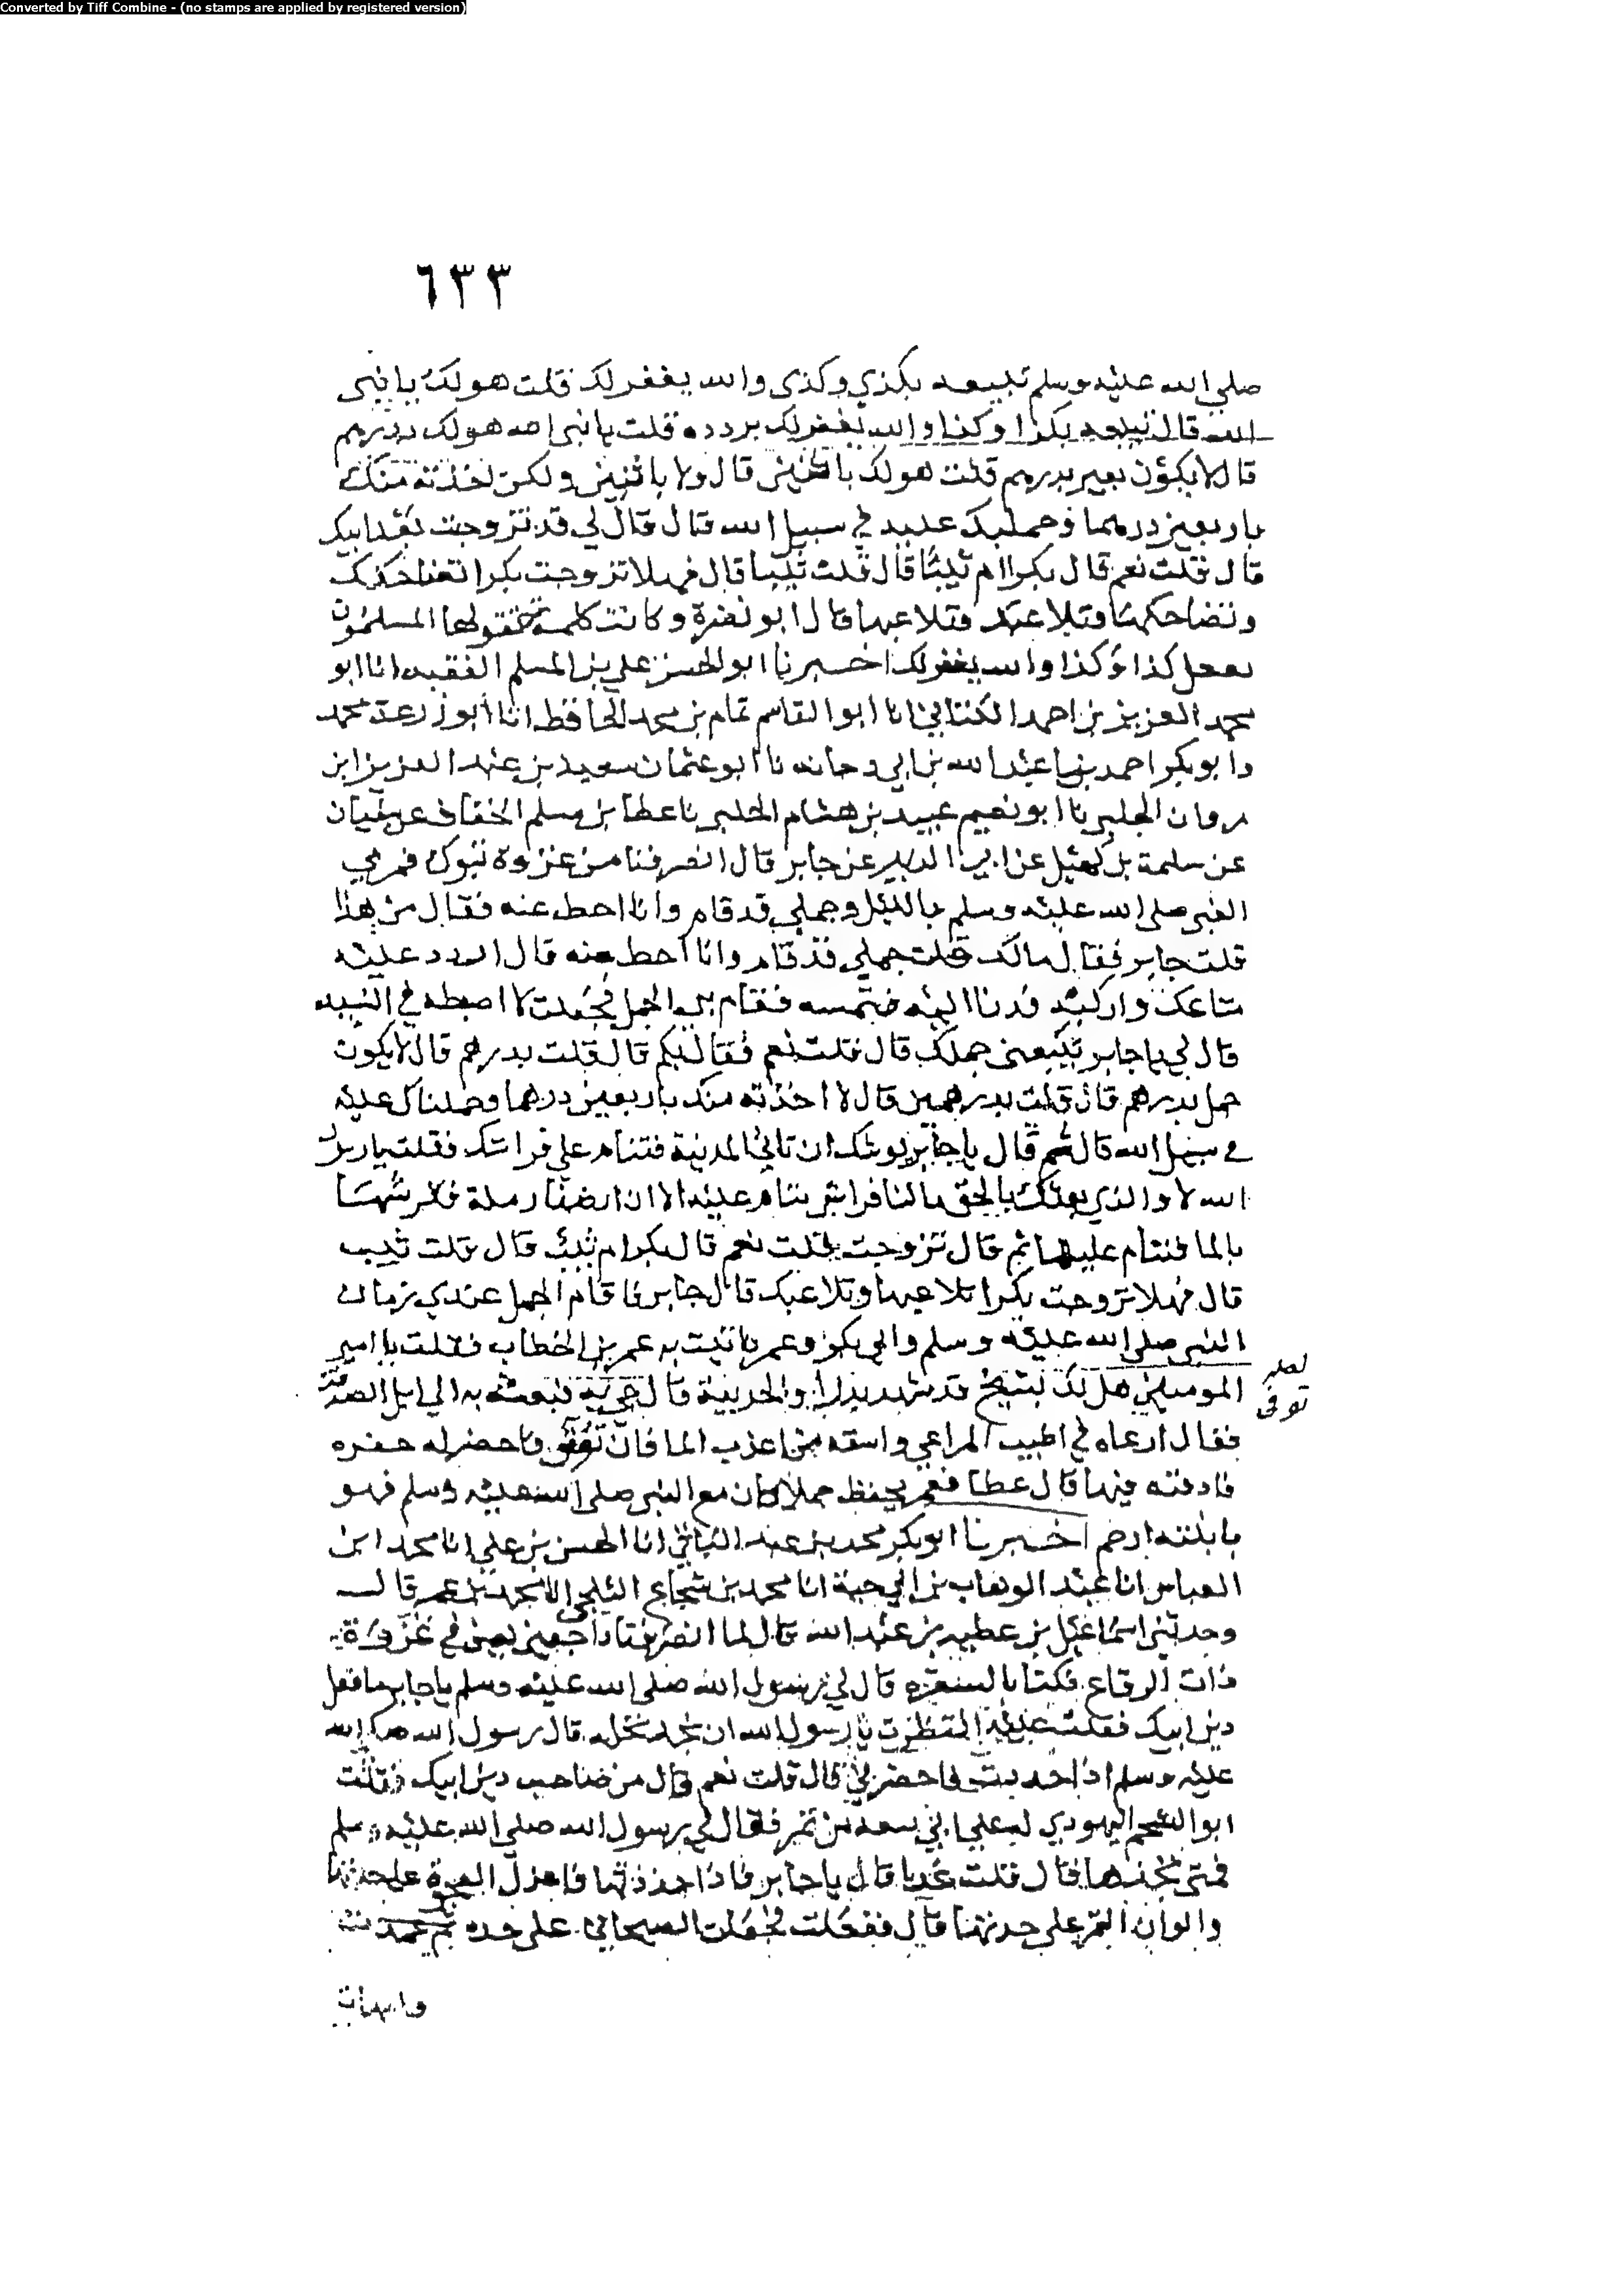 Converted by Tiff Combine - (no stamps are applied by registered version)
٦٣٣
صلي الله عليه وسلم تبيعه بكذي وكذى والله يغفر لك قلت هو لك يا نبى
الله قال تبيعه بكذا وكذا والله يغفر لك يردده قلت يا نبى الله هو لك بدرهم
قال لا يكون بعير بدرهم قلت هو لك باثنين قال ولا باثنين ولكن اخذته منك
باربعين درهما وحملناك عليه في سبيل الله قال قال لي قد تزوجت بعد ابيك
قال فقلت نعم قال بكرا ام ثيبا قال قلت ثيبا قال فهلا تزوجت بكرا تضاحكك
وتضاحكها وتلاعبك وتلاعبها قال ابو نضرة وكانت كلمة يقولها المسلمون
افعل كذا وكذا والله يغفر لك اخبرنا ابو الحسن علي بن المسلم الفقيه انا ابو
محمد العزيز بن احمد الكتاني انا ابو القاسم تمام بن محمد الحافظ انا ابو زرعة محمد
وابو بكر احمد بنا عبد الله بن ابي دجانه نا ابو عثمان سعيد بن عبد العزيز ابن
مروان الحلبي نا ابو نعيم عبيد بن هشام الحلبي نا عطا بن مسلم الخفاف عن سفيان
عن سلمة بن كهيل عن ابي الزبير عن جابر قال انصرفنا من غزوة تبوك فمر بي
النبي صلى الله عليه وسلم بالليل وجملي قد قام وانا احط عنه فقال من هذا
قلت جابر فقال مالك قلت جملي قد قام وانا احط عنه قال اردد عليه
متاعك واركبه فدنا اليه فنخسه فقام بي الجمل فجعلت لا اضبطه في السير
قال لي يا جابر تبيعني جملك قال قلت نعم فقال بكم قال قلت بدرهم قال لا يكون
جمل بدرهم قال قلت بدرهمين قال لا اخذته منك باربعين درهما وحملناك عليه
في سبيل الله قال ثم قال يا جابر يوشك ان تاتي المدينة فتنام علي فراشك فقلت يا رسول
الله لا والذي بعثك بالحق ما لنا فراش ننام عليه الا ان ارضنا رملة فنرشها
بالما فننام عليها ثم قال تزوجت قلت نعم قال بكرا ام ثيب قال قلت ثيب
قال فهلا تزوجت بكرا تلاعبها وتلاعبك قال جابر فاقام الجمل عندي زمان
النبي صلى الله عليه وسلم وابي بكر وعمر فاتيت به عمر بن الخطاب فقلت يا امير
المومنين هل لك بشيخ قد شهد بدرا والحديبية قال جي به فبعث به الي ابل الصدقة
لعله
توفى
فقال ارعاه في اطيب المراعي واسقه من اعذب الما فان توفي فاحضر له حفره
فادفنه فيها قال عطا فعمر يحفظ جملا كان مع النبي صلى الله عليه وسلم فهو
بابنته ارحم اخبرنا ابو بكر محمد بن عبد الباقي انا الحسن بن علي انا محمد ابن
العباس انا عبد الوهاب بن ابي حية انا محمد بن شجاع الثلجي انا محمد بن عمر قال
وحدثني اسماعيل بن عطيه بن عبد الله قال لما انصرفنا راجعين يعني في غزوة
ذات الرقاع فكنا بالشقرة قال لي رسول الله صلى الله عليه وسلم يا جابر ما فعل
دين ابيك فقلت عليه انتظرت يا رسول الله ان يجد نخله قال رسول الله صلى الله
عليه وسلم اذا جديت فاحضرني قال قلت نعم قال من صاحب دين ابيك فقلت
ابو الشحم اليهودي له علي ابي سعه من تمر فقال لي رسول الله صلى الله عليه وسلم
فمتى تجدها قال قلت غدا قال يا جابر فاذا جددتها فاعزل العجوة على حدتها
والوان التمر على حدتها قال ففعلت فجعلت الصيحاني على حده